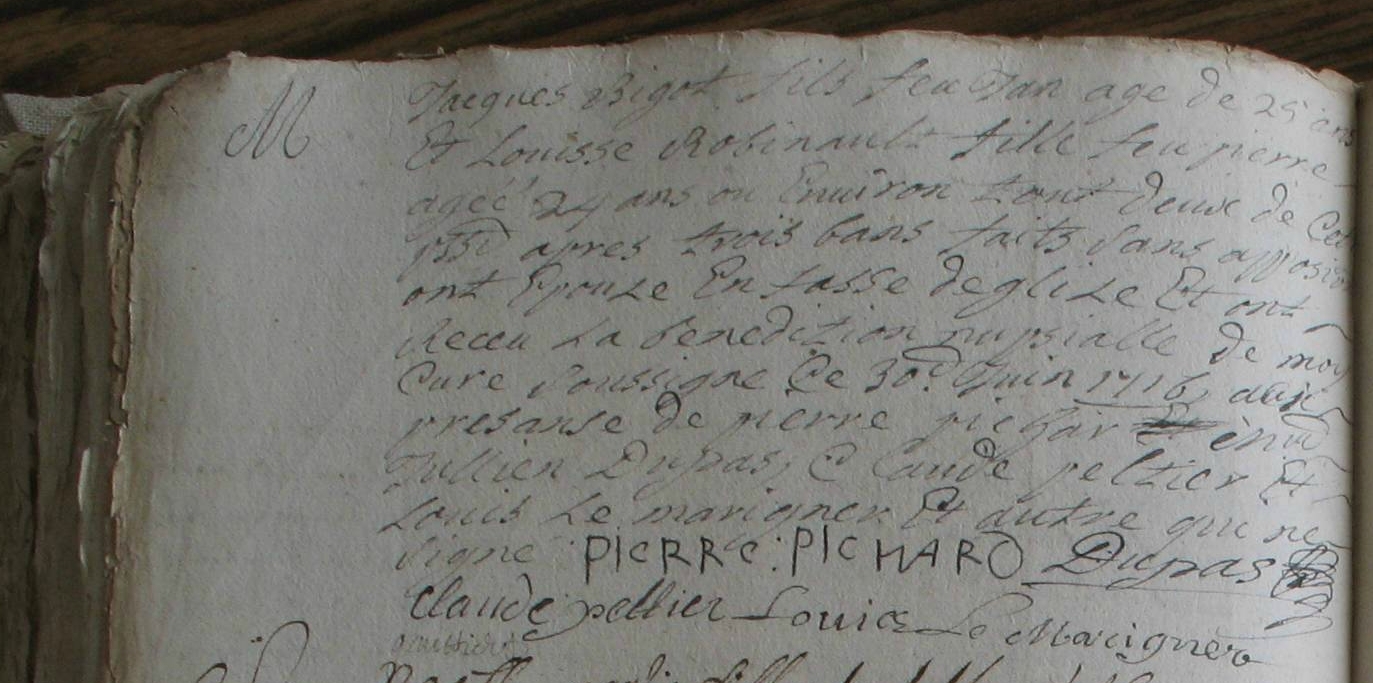 M
Jacques Bigot fils feu Jan age de 25 ans
Et Louisse Robinault fille feu pierre
ageé 24 ans ou Environ tout deux de Cet
apres trois bans faits sans opposion
ont Epouze En fasse deglize Et ont
Receu La benedition nupsialle de moy
Cure soussigne Ce 30e Juin 1716
presanse de pierre pichar
Jullien Dupas, Claude peltier Et
Louis Le marigner Et autre qui ne
signe PIERRe : PICHARD Dupas
Claude peltier Louis Le Marigner